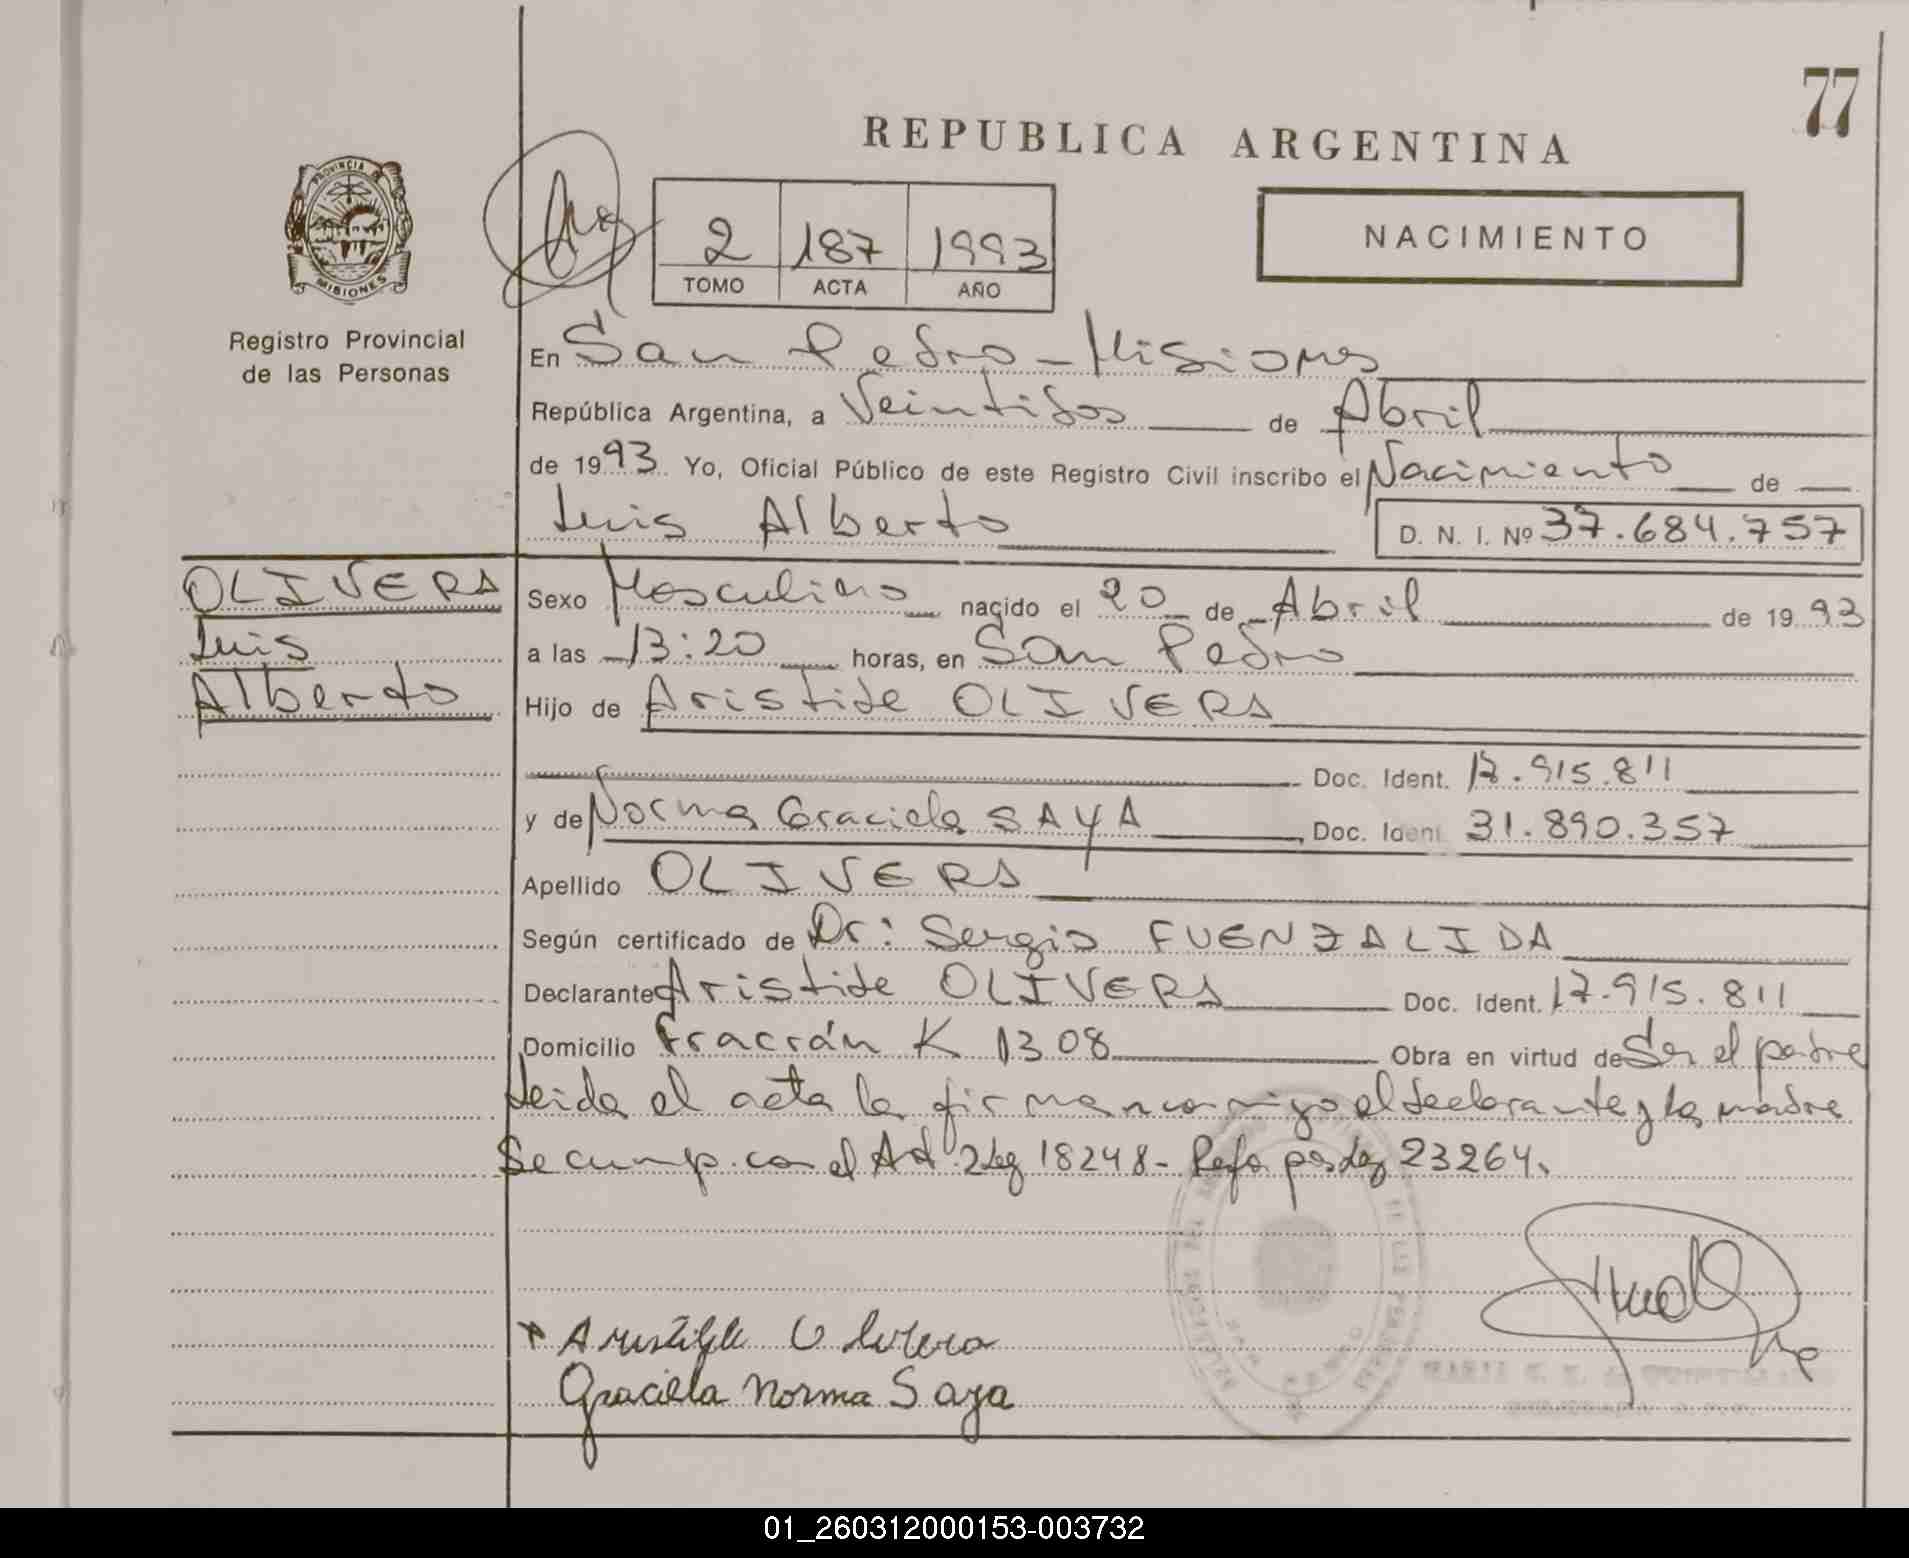 77
REPUBLICA ARGENTINA
NACIMIENTO
PROVINCIA DE
MISIONES
Registro Provincial
de las Personas
2 187 1993
TOMO ACTA AÑO
En San Pedro - Misiones
República Argentina, a Veintidos de Abril
de 1993. Yo, Oficial Público de este Registro Civil inscribo el Nacimiento de
Luis Alberto D. N. I. Nº 37.684.757
OLIVERA
Luis
Alberto
Sexo Masculino nacido el 20 de Abril de 1993
a las 13:20 horas, en San Pedro
Hijo de Aristide OLIVERA
Doc. Ident. 17.915.811
y de Norma Graciela SAYA, Doc. Ident. 31.890.357
Apellido OLIVERA
Según certificado de Dr: Sergio FUENZALIDA
Declarante Aristide OLIVERA Doc. Ident. 17.915.811
Domicilio Fracrán K 1308 Obra en virtud de Ser el padre
Leida el acta la firman conmigo el declarante y la madre
Se cump. con el Art. 2 Ley 18248 - Refor por Ley 23264.
Olivera
Graciela Norma Saya
01_260312000153-003732